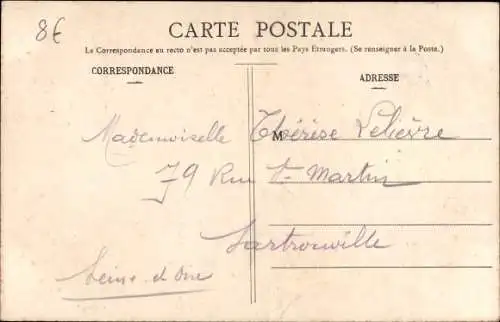 8€
CARTE POSTALE
La Correspondance au recto n'est pas acceptée par tous les Pays Etrangers. (Se renseigner à la Poste.)
CORRESPONDANCE
ADRESSE
Mademoiselle M Thérèse Lelièvre
79 Rue St-Martin
Sartrouville
Seine et Oise